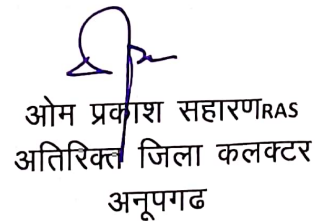 ओम प्रकाश सहारणRAS
अतिरिक्त जिला कलक्टर
अनूपगढ